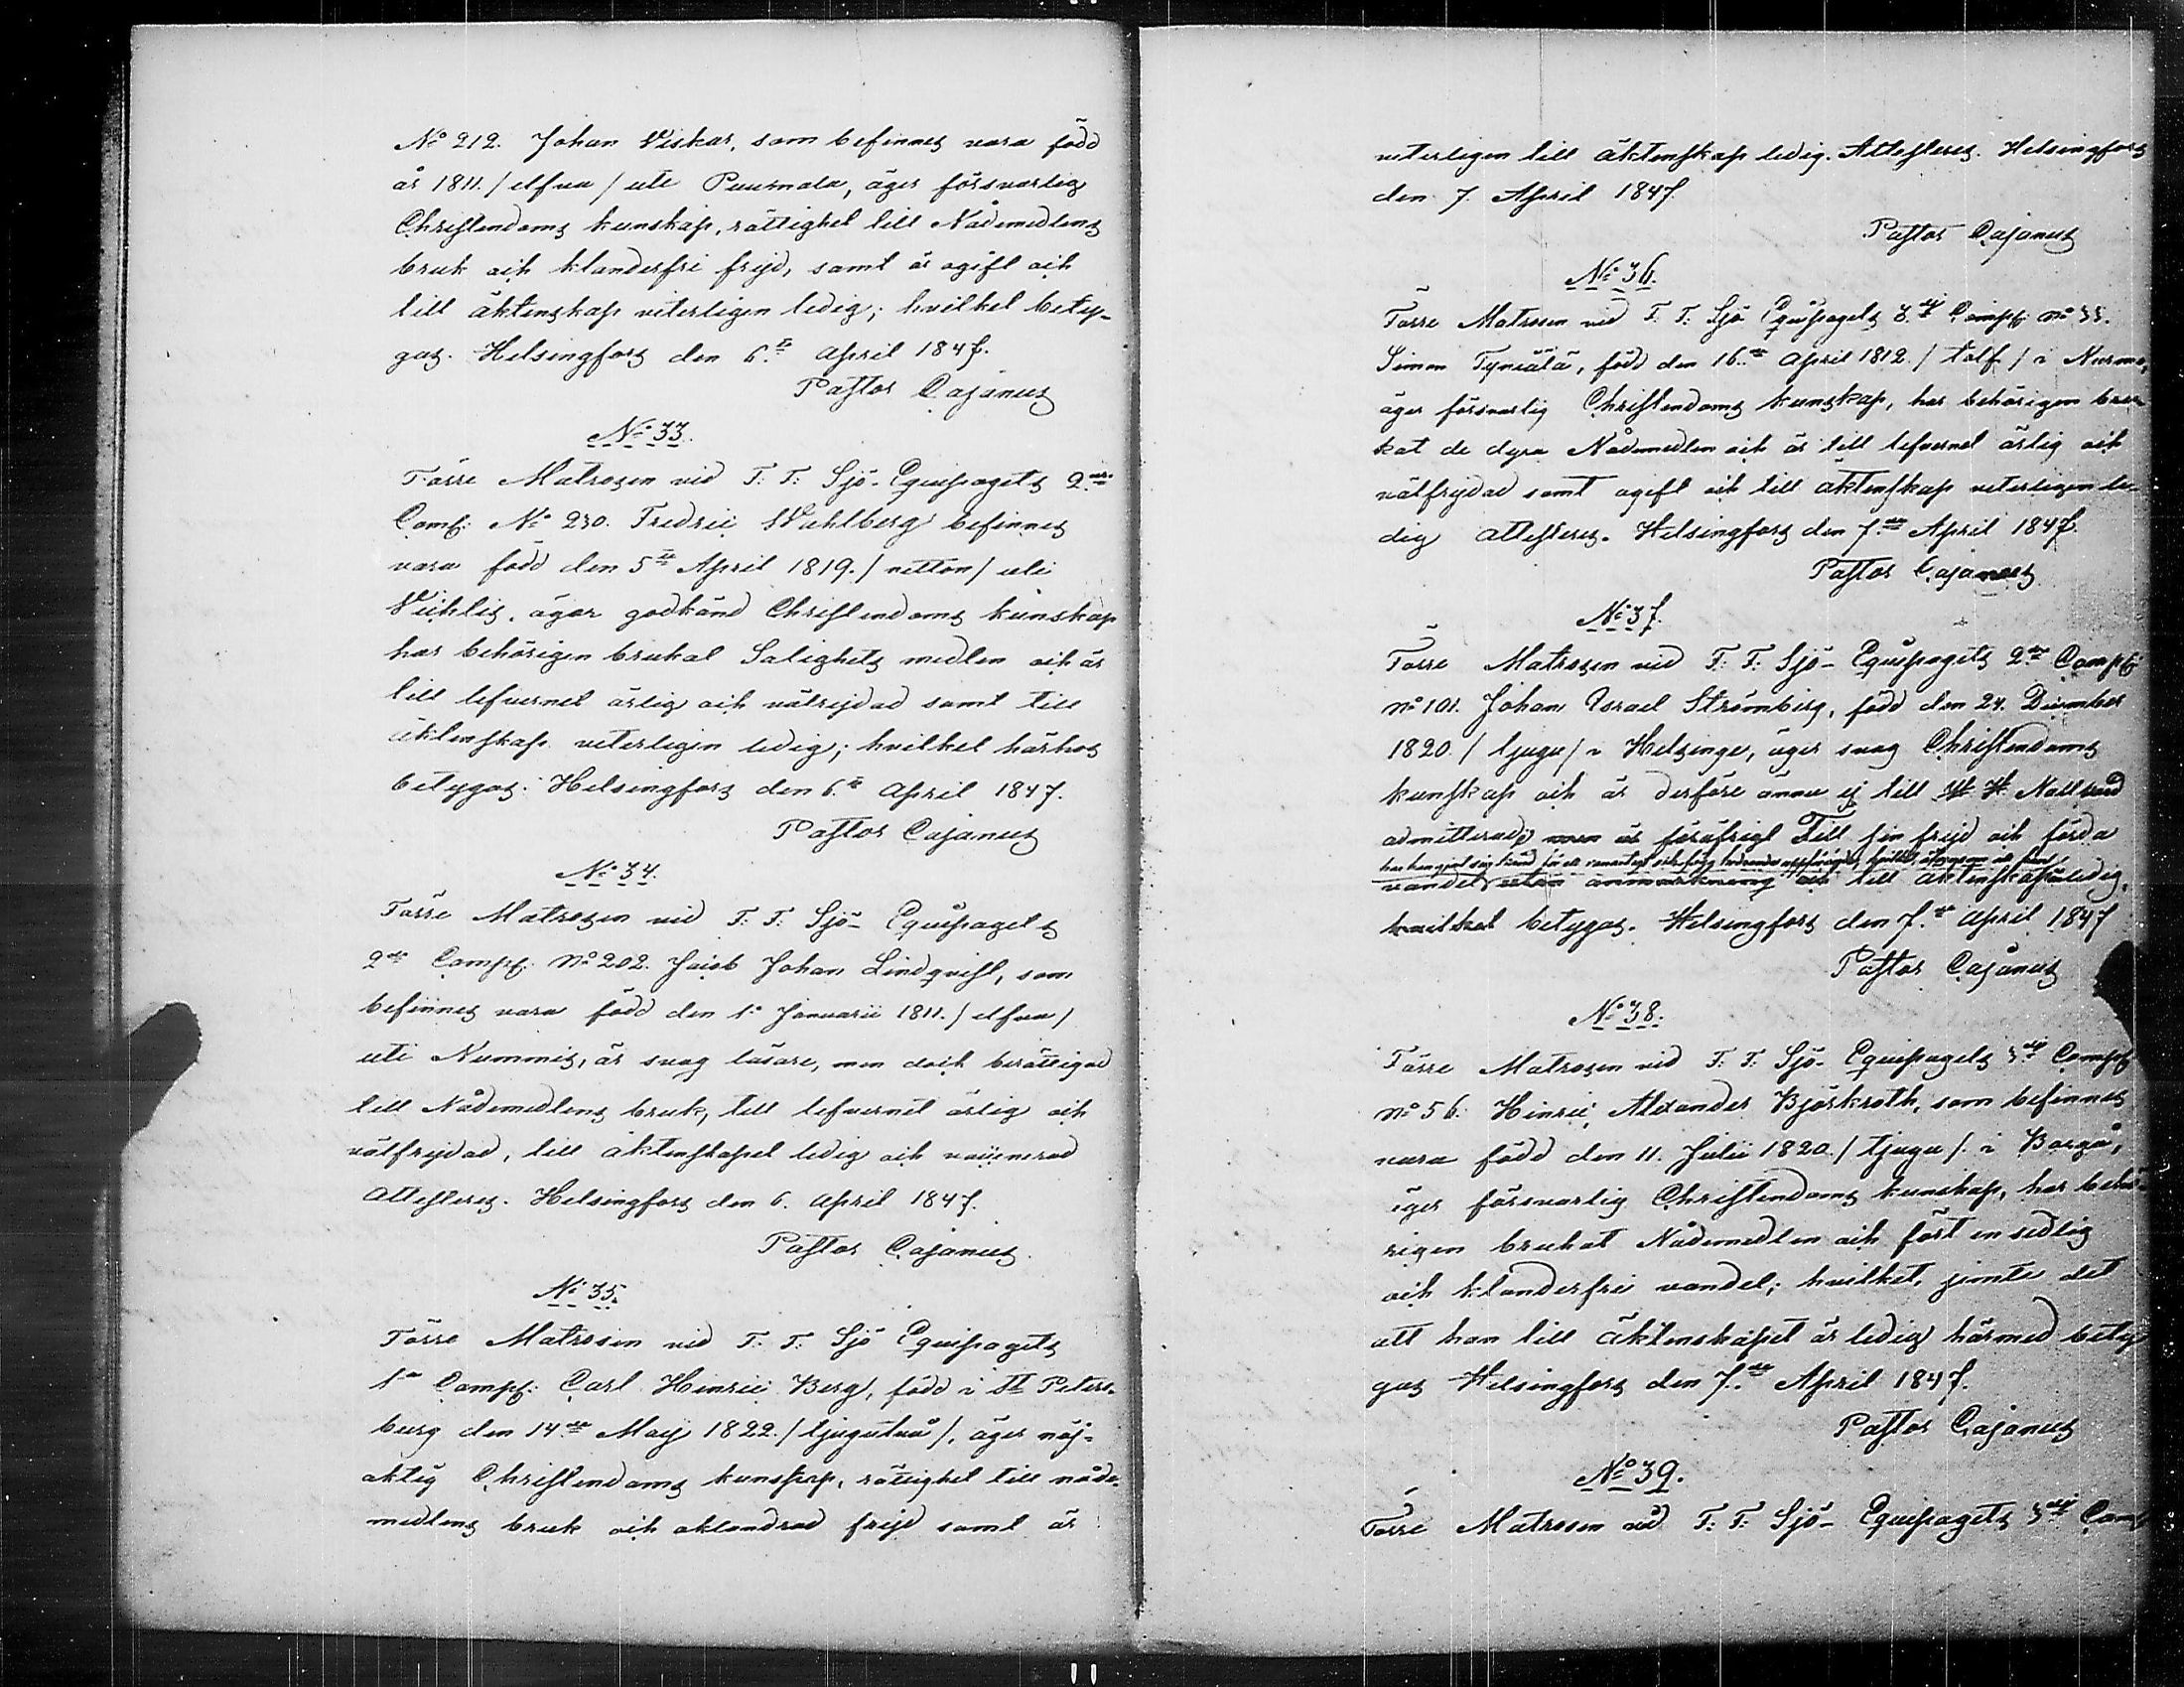 No 212. Johan Viskar, som befinnes vara född
år 1811. / elfva / uti Puumala, äger försvarlig
Christendoms kunskap, rättighet till Nådemedlens
bruk och klanderfri frejd, samt är ogift och
till äktenskap veterligen ledig; hvilket bety-
gas. Helsingfors den 6.te April 1847.
Pastor Cajanus
No 33.
Förre Matrosen vid F. F. Sjö-Equipagets 2.dra
Comp: No 230. Fredric Wahlberg befinnes
vara född den 5te April 1819. / nitton / uti
Vichtis, äger godkänd Christendoms kunskap
har behörigen brukat Salighets medlen och är
till lefvernet ärlig och välfrejdad samt till
äktenskap veterligen ledig; hvilket härhos
betygas. Helsingfors den 6.te April 1847.
Pastor Cajanus
No 34.
Förre Matrosen vid F. F. Sjö-Equipagets
2dra Comp: No 202. Jacob Johan Lindqvist, som
befinnes vara född den 1a Januarii 1811. / elfva /
uti Nummis, är svag läsare, men dock berättigad
till Nådemedlens bruk, till lefvernet ärlig och
välfrejdad, till äktenskapet ledig och vaccinerad
Attesteres. Helsingfors den 6. April 1847.
Pastor Cajanus.
No 35.
Förre Matrosen vid F. F. Sjö Equipagets
1a Comp: Carl Henric Berg, född i St Peters-
burg den 14de Maij 1822. / tjugutvå /, äger nöj-
aktig Christendoms kunskap, rättighet till nåde-
medlens bruk och oklandrad frejd samt är
veterligen till äktenskap ledig. Attesteres. Helsingfors
den 7. April 1847.
Pastor Cajanus
No 36.
Förre Matrosen vid F. F. Sjö Equipagets 3.dje Comp: No 33.
Simon Tynjälä, född den 16.de April 1812. / tolf / i Nurmo,
äger försvarlig Christendoms kunskap, har behörigen bru-
kat de dyra Nådemedlen och är till lefvernet ärlig och
välfrejdad samt ogift och till äktenskap veterligen le-
dig Attesteres. Helsingfors den 7.de April 1847.
Pastor Cajanus
No 37.
Förre Matrosen vid F. F. Sjö-Equipagets 2dra Comp:
No 101. Johan Israel Strömberg, född den 24. December
1820. / tjugu / i Helsinge, äger svag Christendoms
kunskap och är derföre ännu ej till H. H. Nattvard
admitterad, men är föröfrigt Till sin frejd och förda
har han gjort sig känd för ett
vandel utan anmärkning och till äktenskap ledig,
hvilket betygas. Helsingfors den 7.de April 1847
Pastor Cajanus
No 38.
Förre Matrosen vid F. F. Sjö-Equipagets 3dje Comp:
No 56. Henric Alexander Björkroth, som befinnes
vara född den 11. Julii 1820. / tjugu /. i Borgå,
äger försvarlig Christendoms kunskap, har behö-
rigen brukat Nådemedlen och fört en sedlig
och klanderfri vandel; hvilket, jemte det
att han till äktenskapet är ledig härmed bety-
gas Helsingfors den 7.de April 1847.
Pastor Cajanus
No 39.
Förre Matrosen vid F. F. Sjö-Equipagets 3dje Comp